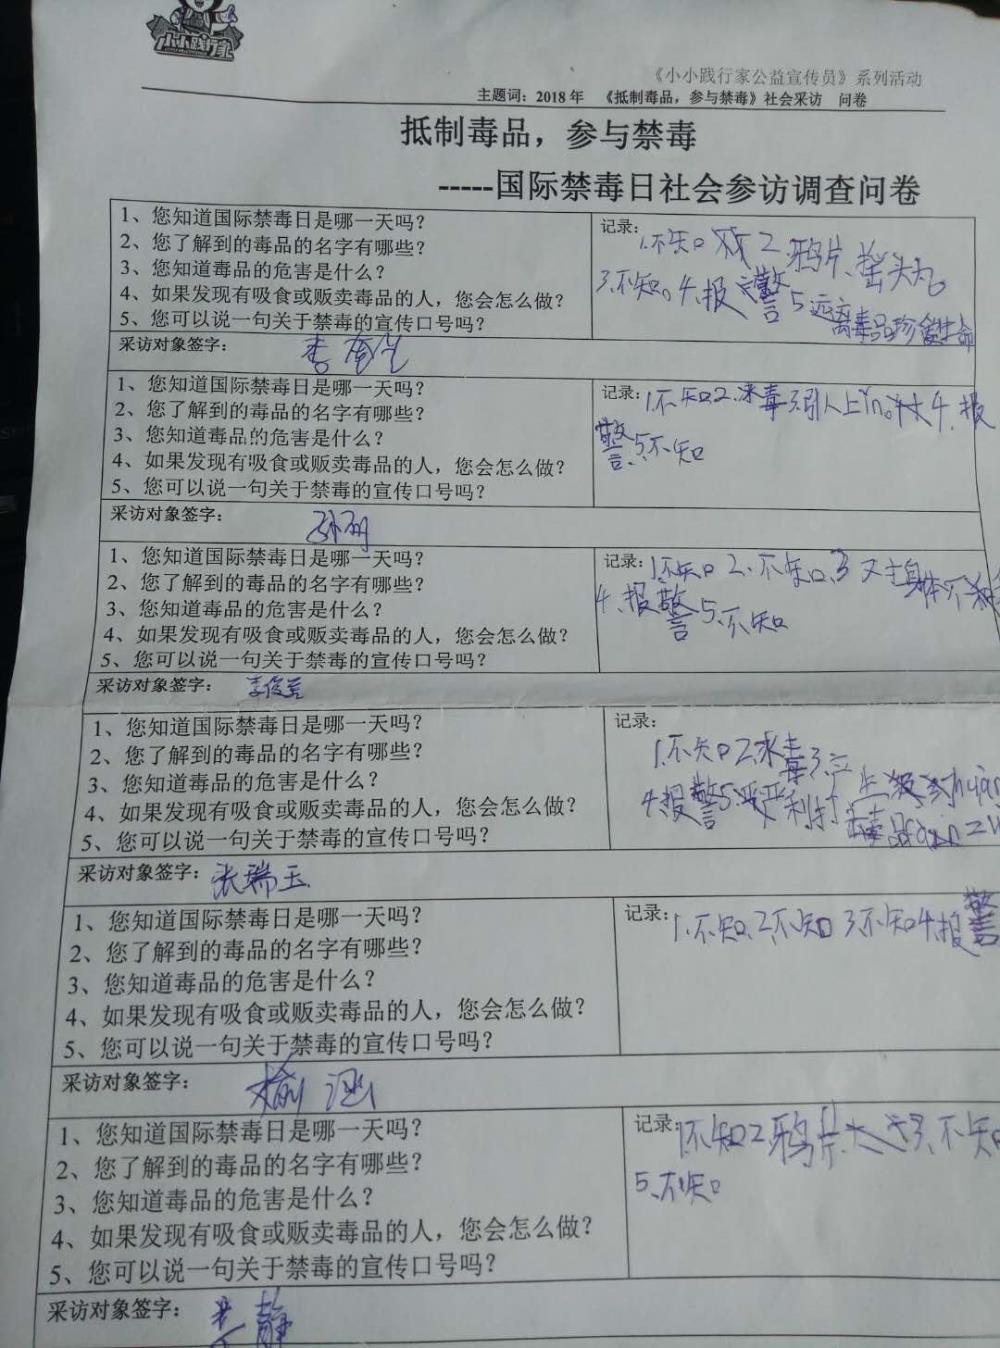 小小践行家
《小小践行家公益宣传员》系列活动
主题词：2018年 《抵制毒品，参与禁毒》社会采访 问卷
抵制毒品，参与禁毒
-----国际禁毒日社会参访调查问卷
1、您知道国际禁毒日是哪一天吗？
2、您了解到的毒品的名字有哪些？
3、您知道毒品的危害是什么？
4、如果发现有吸食或贩卖毒品的人，您会怎么做？
5、您可以说一句关于禁毒的宣传口号吗？
记录：
1.不知 2 鸦片、摇头丸
3.不知。4.报警 5 远离毒品珍爱生命
采访对象签字：
1、您知道国际禁毒日是哪一天吗？
2、您了解到的毒品的名字有哪些？
3、您知道毒品的危害是什么？
4、如果发现有吸食或贩卖毒品的人，您会怎么做？
5、您可以说一句关于禁毒的宣传口号吗？
记录：1.不知2.冰毒3.引人上yǐn 4.报
警5.不知
采访对象签字：
1、您知道国际禁毒日是哪一天吗？
2、您了解到的毒品的名字有哪些？
3、您知道毒品的危害是什么？
4、如果发现有吸食或贩卖毒品的人，您会怎么做？
5、您可以说一句关于禁毒的宣传口号吗？
记录：1.不知 2.不知 3 对身体不
4.报警5.不知
采访对象签字：李俊
1、您知道国际禁毒日是哪一天吗？
2、您了解到的毒品的名字有哪些？
3、您知道毒品的危害是什么？
4、如果发现有吸食或贩卖毒品的人，您会怎么做？
5、您可以说一句关于禁毒的宣传口号吗？
记录：
1.不知2.冰毒3.产生
4.报警5.严利打击毒品
采访对象签字：张瑞玉
1、您知道国际禁毒日是哪一天吗？
2、您了解到的毒品的名字有哪些？
3、您知道毒品的危害是什么？
4、如果发现有吸食或贩卖毒品的人，您会怎么做？
5、您可以说一句关于禁毒的宣传口号吗？
记录：1.不知2.不知3不知4.报警
采访对象签字：
1、您知道国际禁毒日是哪一天吗？
2、您了解到的毒品的名字有哪些？
3、您知道毒品的危害是什么？
4、如果发现有吸食或贩卖毒品的人，您会怎么做？
5、您可以说一句关于禁毒的宣传口号吗？
记录：1不知2鸦片 3、不知
5、不知
采访对象签字：静